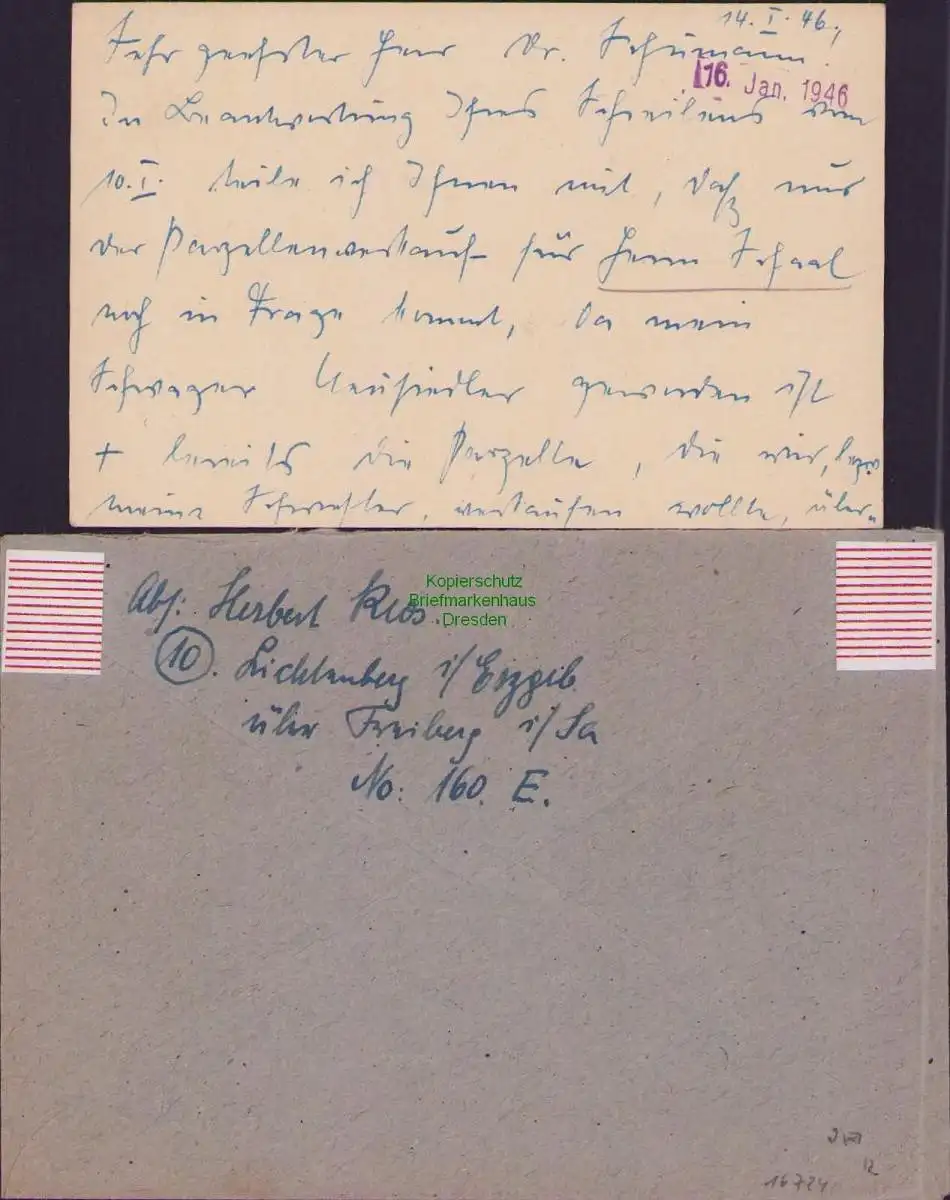 14. I. 46.
Sehr geehrter Herr Dr. Schumann!
16. Jan. 1946
In Beantwortung Ihres Schreibens vom
10. I. teile ich Ihnen mit, daß nur
der Parzellenverkauf für Herrn Schaal
noch in Frage kommt, da mein
Schwager Neusiedler geworden ist
+ bereits die Parzelle, die wir, bezw
meine Schwester, verkaufen wollte, über-
Kopierschutz
Briefmarkenhaus
Dresden
Abs: Herbert
10. Lichtenberg i/Erzgeb.
über Freiberg i/Sa
No: 160. E.
12
16724